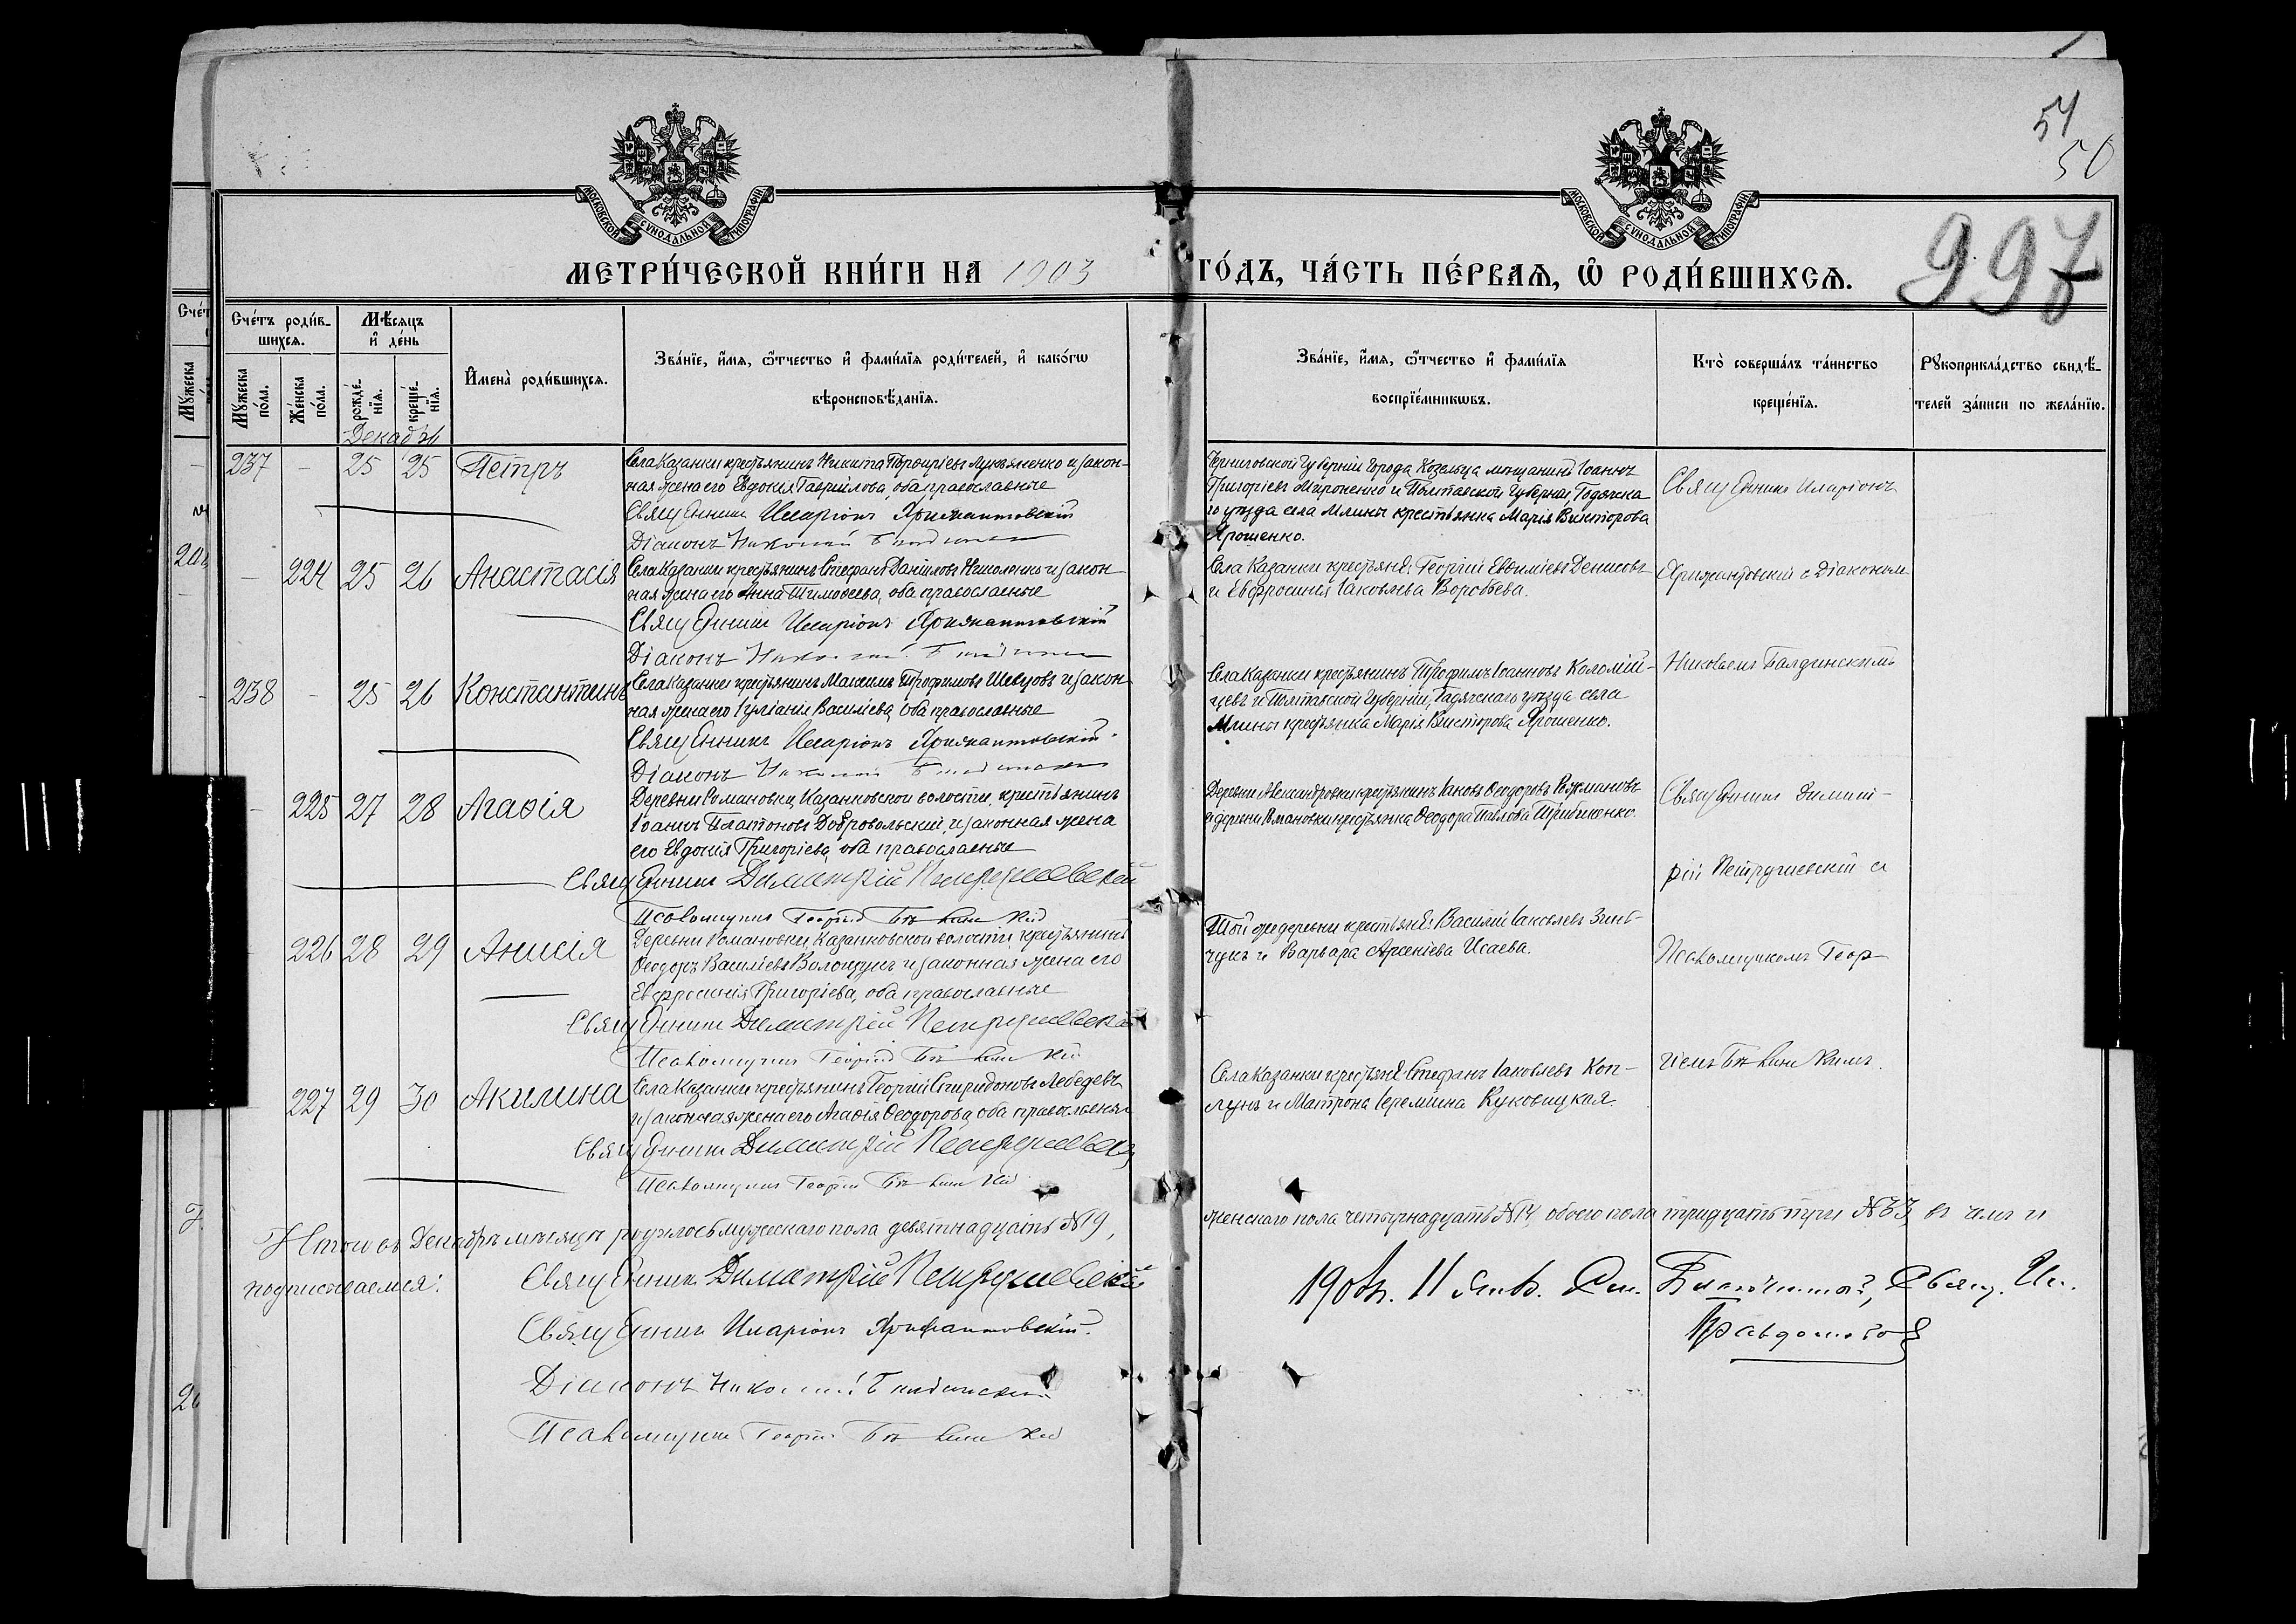 54
50
997
МОСКОВСКОЙ СѴНОДАЛЬНОЙ ТИПОГРАФІИ
МОСКОВСКОЙ СѴНОДАЛЬНОЙ ТИПОГРАФІИ
МЕТРИ́ЧЕСКОЙ КНИ́ГИ НА 1903 ГО́ДЪ, ЧА́СТЬ ПЕ́РВАѦ, Ѡ҆ РОДИ́ВШИХСѦ.
Сче́тъ роди́в-
шихсѧ.
Мѣ́сѧцъ
и҆ де́нь
Мꙋ́жеска
по́ла.
Же́нска
по́ла.
рожде́-
нїѧ.
креще́-
нїѧ.
И҆мена̀ роди́вшихсѧ.
Зва́нїе, и҆́мѧ, ѻ҆́тчество и҆ фами́лїѧ роди́телей, и҆ како́гѡ
вѣроисповѣ́данїѧ.
Зва́нїе, и҆́мѧ, ѻ҆́тчество и҆ фами́лїѧ
воспрїе́мникѡвъ.
Кто̀ соверша́лъ та́инство
креще́нїѧ.
Рꙋкоприкла́дство свидѣ́-
телей за́писи по жела́нїю.
Декабрь
237 – 25 25 Петръ
Села Казанки крестьянинъ Никита Порфиріевъ Лукьяненко и закон-
ная жена его Евдокія Гавріилова, оба православные
Священникъ Иларіонъ Хрижантовскій
Діаконъ Николай
Черниговской Губерніи города Козельца мѣщанинъ Іоаннъ
Григоріевъ Мироненко и Полтавской Губерніи, Гадячска
го уѣзда села Млины крестьянка Марія Викторова
Ярошенко.
Священникъ Иларіонъ
– 224 25 26 Анастасія
Села Казанки крестьянинъ Стефанъ Даніиловъ Николенко и закон-
ная жена его Анна Тимоѳеева, оба православные
Священникъ Иларіонъ Хрижантовскій
Діаконъ Николай
Села Казанки крестьяне: Георгій Евѳиміевъ Денисовъ
и Евфросинія Іаковлева Воробьева.
Хрижантовскій с Діакономъ
238 – 25 26 Константинъ
Села Казанки крестьянинъ Максимъ Трофимовъ Шевцовъ и закон-
ная жена его Іуліанія Василіева, оба православные
Священникъ Иларіонъ Хрижантовскій.
Діаконъ Николай
Села Казанки крестьянинъ Трофимъ Іоанновъ Коломій-
цевъ и Полтавской Губерніи, Гадячскаго уѣзда села
Млины крестьянка Марія Викторова Ярошенко.
Николаемъ Балдинскимъ
– 225 27 28 Агаѳія
Деревни Романовки, Казанковской волости, крестьянинъ
Іоаннъ Платоновъ Добровольскій, и законная жена
его Евдокія Григоріева, оба православные
Священникъ Димитрій Петрушевскій
Псаломщикъ Георгій
Деревни Александровки крестьянинъ Іаковъ Ѳеодоровъ
и деревни Романовки крестьянка Ѳеодора Павлова
Священникъ Димит-
рій Петрушевскій съ
226 28 29 Анисія
Деревни Романовки, Казанковской волости, крестьянинъ
Ѳеодоръ Василіевъ Волощукъ и законная жена его
Евфросинія Григоріева, оба православные
Священникъ Димитрій Петрушевскій
Псаломщикъ Георгій
Той же деревни крестьяне: Василій Іаковлевъ Зинь-
чукъ и Варвара Арсеніева Исаева.
Псаломщикомъ Геор-
227 29 30 Акилина
Села Казанки крестьянинъ Георгій Спиридоновъ Лебедевъ
и законная жена его Агаѳія Ѳеодорова, оба православные
Священникъ Димитрій Петрушевскій
Псаломщикъ Георгій
Села Казанки крестьяне: Стефанъ Іаковлевъ Кап-
лунъ и Матрона Іереміина Куковицкая.
гіемъ
Итого въ Декабрѣ мѣсяцѣ родилось мужескаго пола девятнадцать №19, женскаго пола четырнадцать №14, обоего пола тридцать три №33, въ чемъ и
подписываемся:
Священникъ Димитрій Петрушевскій
Священникъ Иларіонъ Хрижантовскій.
Діаконъ Николай Балдинскій
Псаломщикъ Георгій
11 Янв. Благочинный, Свящ.